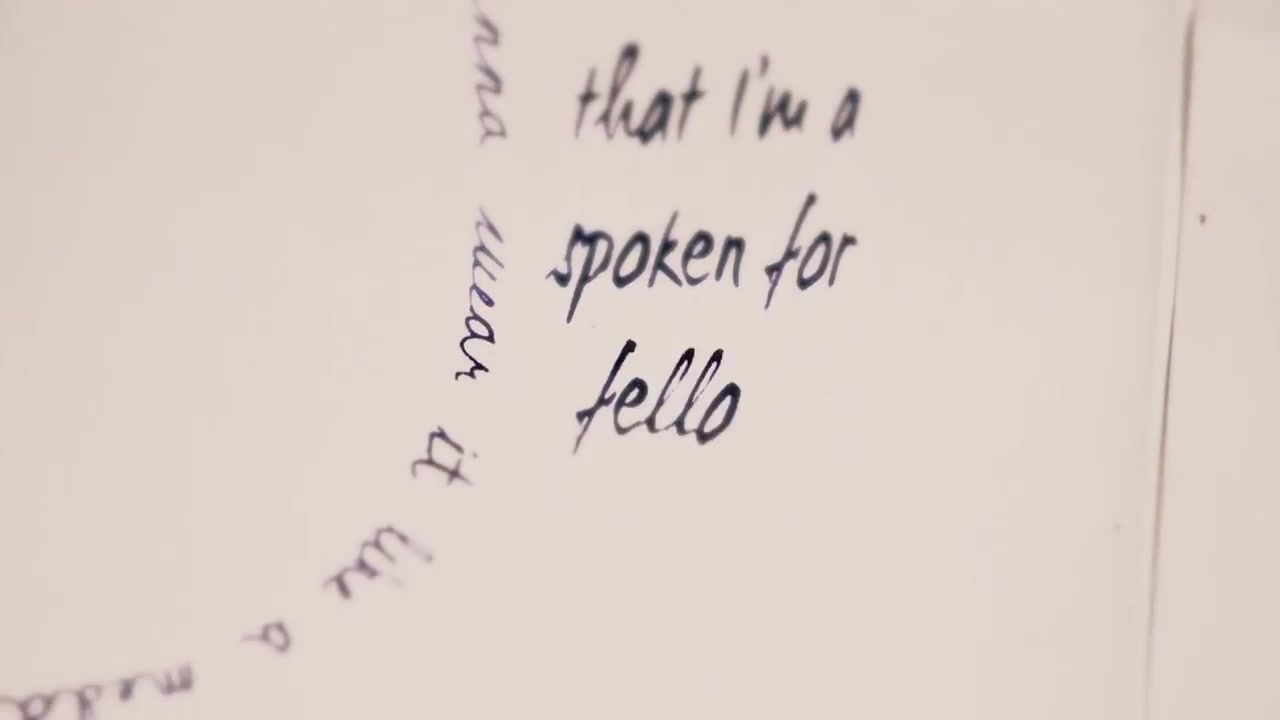 that I'm a
spoken for
fello
nna wear it like a meda